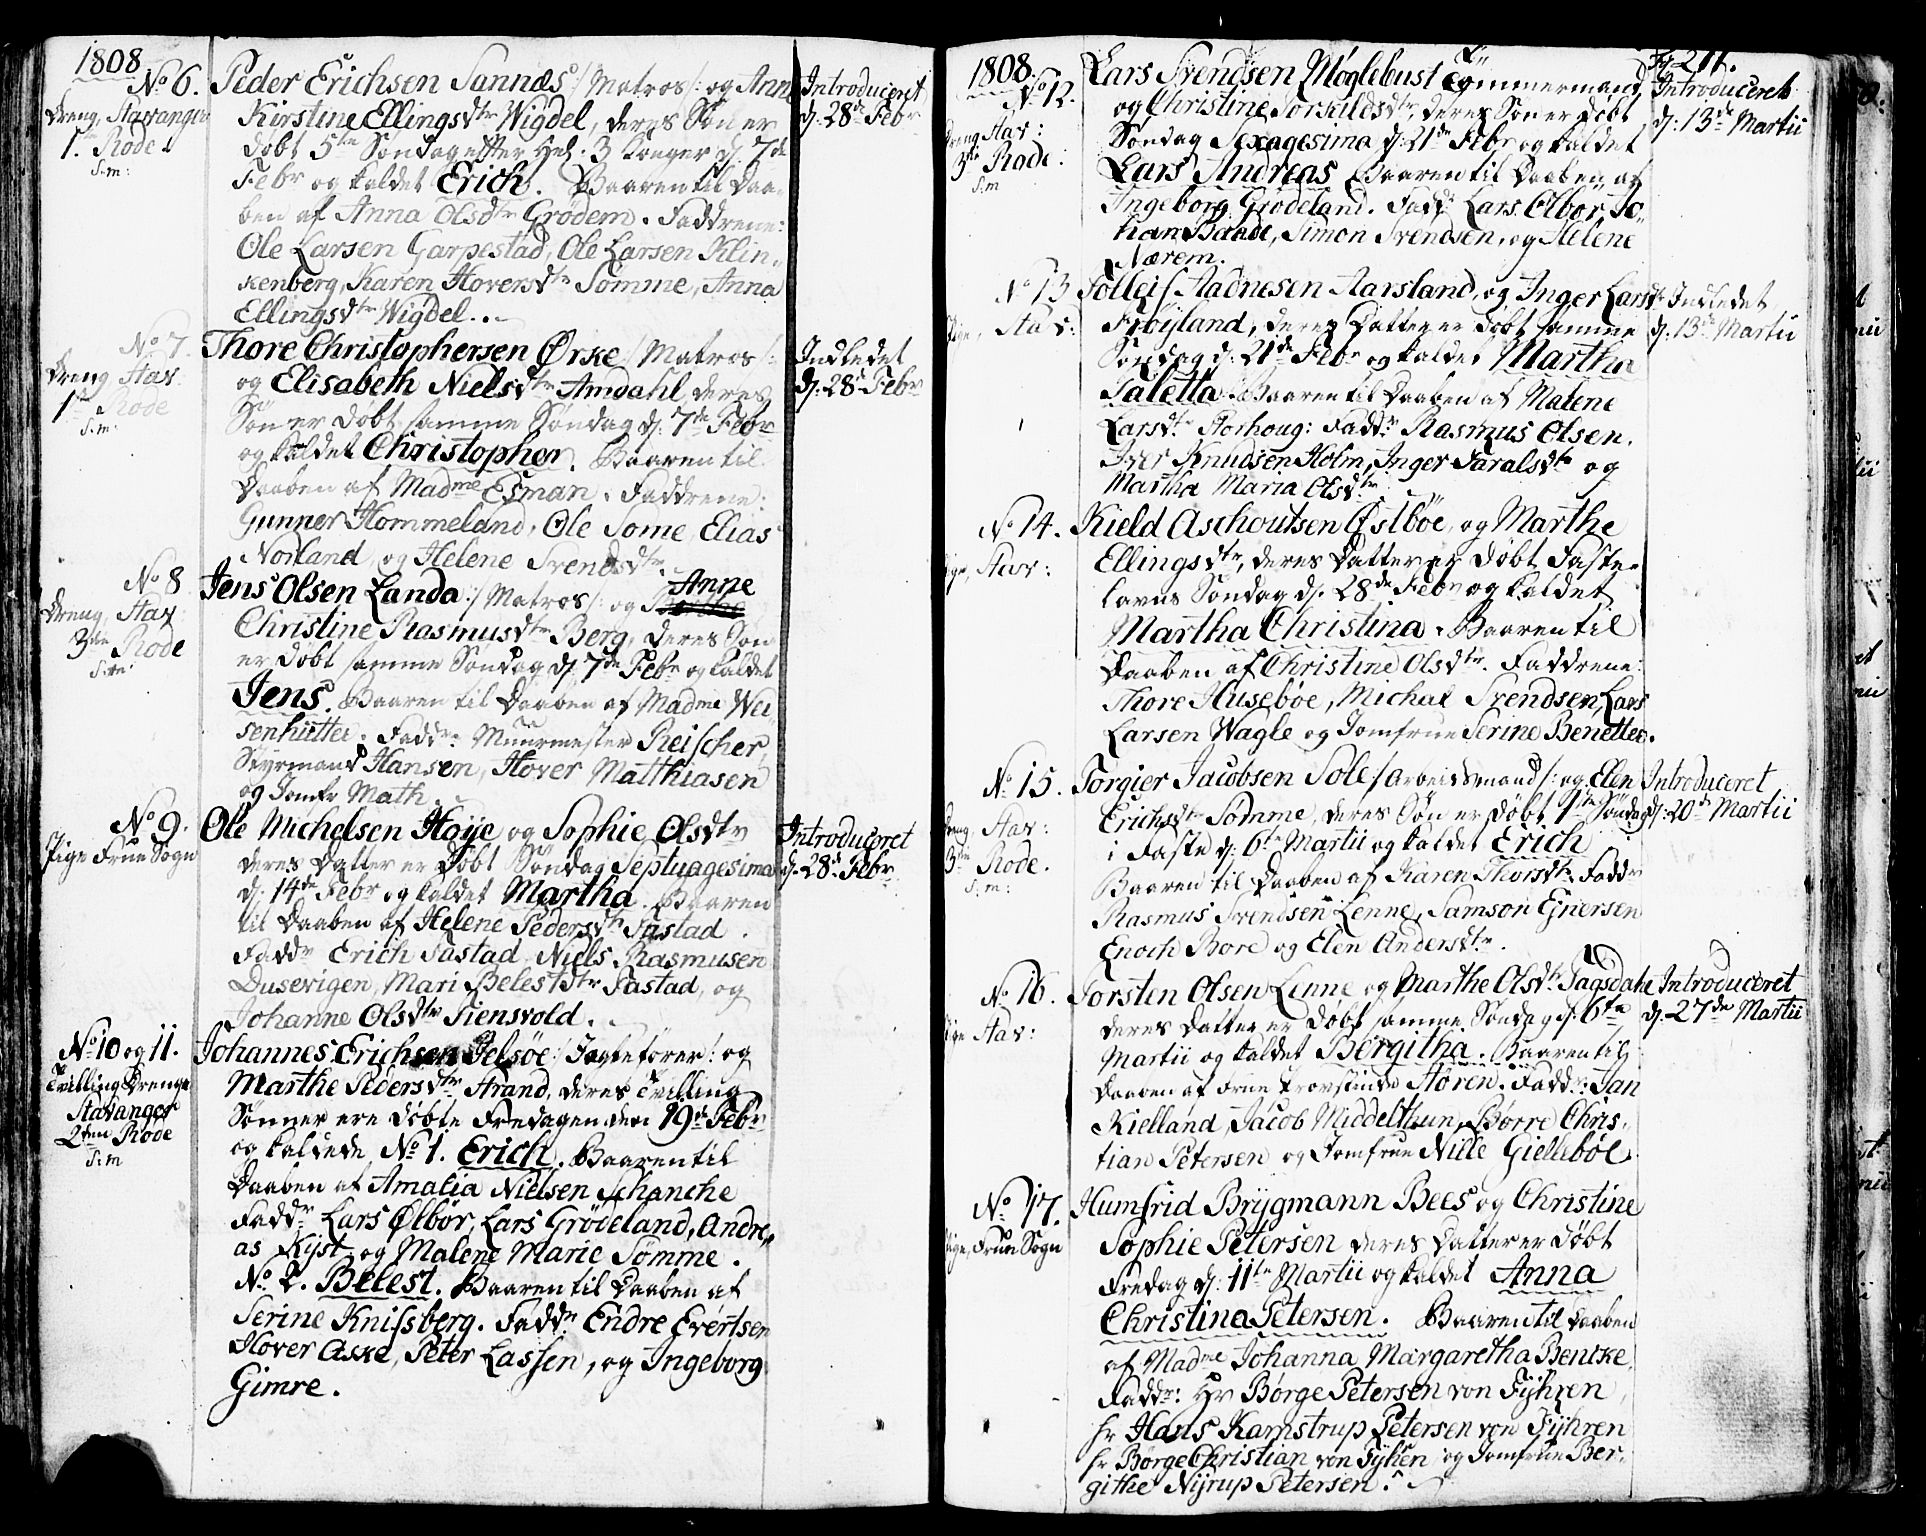 1808
No 6. Peder Erichsen Sannæs /: Matros :/ og Anne Introduceret
Dreng, Stavanger Kirstine Ellingsdtr Wigdel, deres Søn er d. 28de Febr
1. Rode. døbt 5te Søndag efter Hel. 3 Konger d. 7de
S:m: Febr og kaldet Erich. Baaren til Daa-
ben af Anna Olsdtr Grødem. Faddrene:
Ole Larsen Garpestad, Ole Larsen Klin-
kenberg, Karen Hoversdtr Sømme, Anna
Ellingsdtr Wigdel.
No 7. Thore Christophersen Ørke /: Matros :/ Indledet
Dreng Stav: og Elisabeth Nielsdtr Amdahl deres d. 28de Febr
1ste Rode Søn er døbt samme Søndag d. 7de Febr
S:m: og kaldet Christopher. Baaren til
Daaben af Madme Esman. Faddrene:
Gunner Hommeland, Ole Some, Elias
Norland, og Helene Svendsdtr.
No 8 Jens Olsen Landa /: Matros :/ og Anne
Dreng, Stav: Christine Rasmusdtr Berg, deres Søn
3die Rode er døbt samme Søndag d. 7de Febr og kaldet
S:m: Jens. Baaren til Daaben af Madme Wei-
senhütter. Faddr: Muurmester Reischer,
Styrmand Hansen, Hover Matthiasen
og Jomfr Math.
No 9. Ole Michelsen Høije og Sophie Olsdtr Introduceret
Pige Frue Sogn deres Datter er døbt Søndag Septuagesima d. 28de Febr
d. 14de Febr og kaldet Martha. Baaren
til Daaben af Helene Pedersdtr Tastad.
Faddr Erich Tastad, Niels Rasmusen
Dusevigen, Mari Belestdtr Tastad, og
Johanne Olsdtr Tiensvold.
No 10 og 11. Johannes Erichsen Pelsøe /: Jagtefører :/ og
Tvilling Drenge Marthe Pedersdtr Strand, deres Tvilling
Stavanger Sønner ere døbte Fredagen den 19de Febr
2den Rode og kaldede No 1. Erich. Baaren til
S:m Daaben af Amalia Nielsen Schanche
Faddr Lars Ølbør, Lars Grødeland, Andre-
as Kyst, og Malene Marie Sømme.
No 2. Belest. Baaren til Daaben af
Serine Knifsberg. Faddr Endre Evertsen
Hover Aske, Peter Lassen, og Ingeborg
Gimre.
1808. Fol 211.
No 12. Lars Svendsen Møglebust Tømmermand Introduceret
Dreng Stav: og Christine Torkildsdtr, deres Søn er døbt d. 13de Martii
3die Rode. Søndag Sexagesima d. 21de Febr og kaldet
S:m Lars Andreas. Baaren til Daaben af
Ingeborg Grødeland. Faddr Lars Ølbør, Jo-
han Baade, Simon Svendsen, og Helene
Nærem.
No 13 Tolleif Aadnesen Aarsland, og Inger Larsdtr Indledet
Pige, Stav: Frøyland, deres Datter er døbt samme d. 13de Martii
Søndag d. 21de Febr og kaldet Martha
Taletta. Baaren til Daaben af Malene
Larsdtr Rorhoug: Faddr Rasmus Olsen.
Iver Knudsen Holm, Inger Taralsdtr og
Martha Maria Olsdtr
No 14. Kield Aschoutsen Østbøe, og Marthe
Pige, Stav: Ellingsdtr, deres Datter er døbt Faste-
lavns Søndag d. 28de Febr og kaldet
Martha Christina. Baaren til
Daaben af Christine Olsdtr. Faddrene:
Thore Husebøe, Michal Svendsen, Lars
Larsen Wagle og Jomfrue Serine Benetter.
No 15. Torgier Jacobsen Sole /: arbeidsmand :/ og Elen Introduceret
Dreng Stav: Erichsdtr Sømme, deres Søn er døbt 1ste Søndag d. 20de Martii
3die Rode. i Faste d. 6te Martii og kaldet Erich
S:m: Baaren til Daaben af Karen Thorsdtr. Faddr
Rasmus Svendsen Lenne, Samson Ejnersen
Enoch Bore og Elen Andersdtr.
No 16. Torsten Olsen Lenne og Marthe Olsdtr Tagsdahl Introduceret
Pige Stav: deres Datter er døbt samme Søndag d. 6te d. 27de Martii
Martii og kaldet Bergitha. Baaren til
Daaben af Frue Provstinde Støren. Faddr: Jan
Kielland, Jacob Middelthun, Børre Chris-
tian Petersen og Jomfrue Nille Giellebøl.
No 17. Humfrid Brygmann Bees og Christine
Pige, Frue Sogn Sophie Petersen deres Datter er døbt
Fredag d. 11te Martii og kaldet Anna
Christina Petersen. Baaren til Daaben
af Madme Johanna Margaretha Bentke,
Faddr: Hr Børge Petersen von Fyhren,
hr Hans Kamstrup Petersen von Fyhren
hr Børge Christian von Fyhen og Jomfrue Ber-
githe Nyrup Petersen.